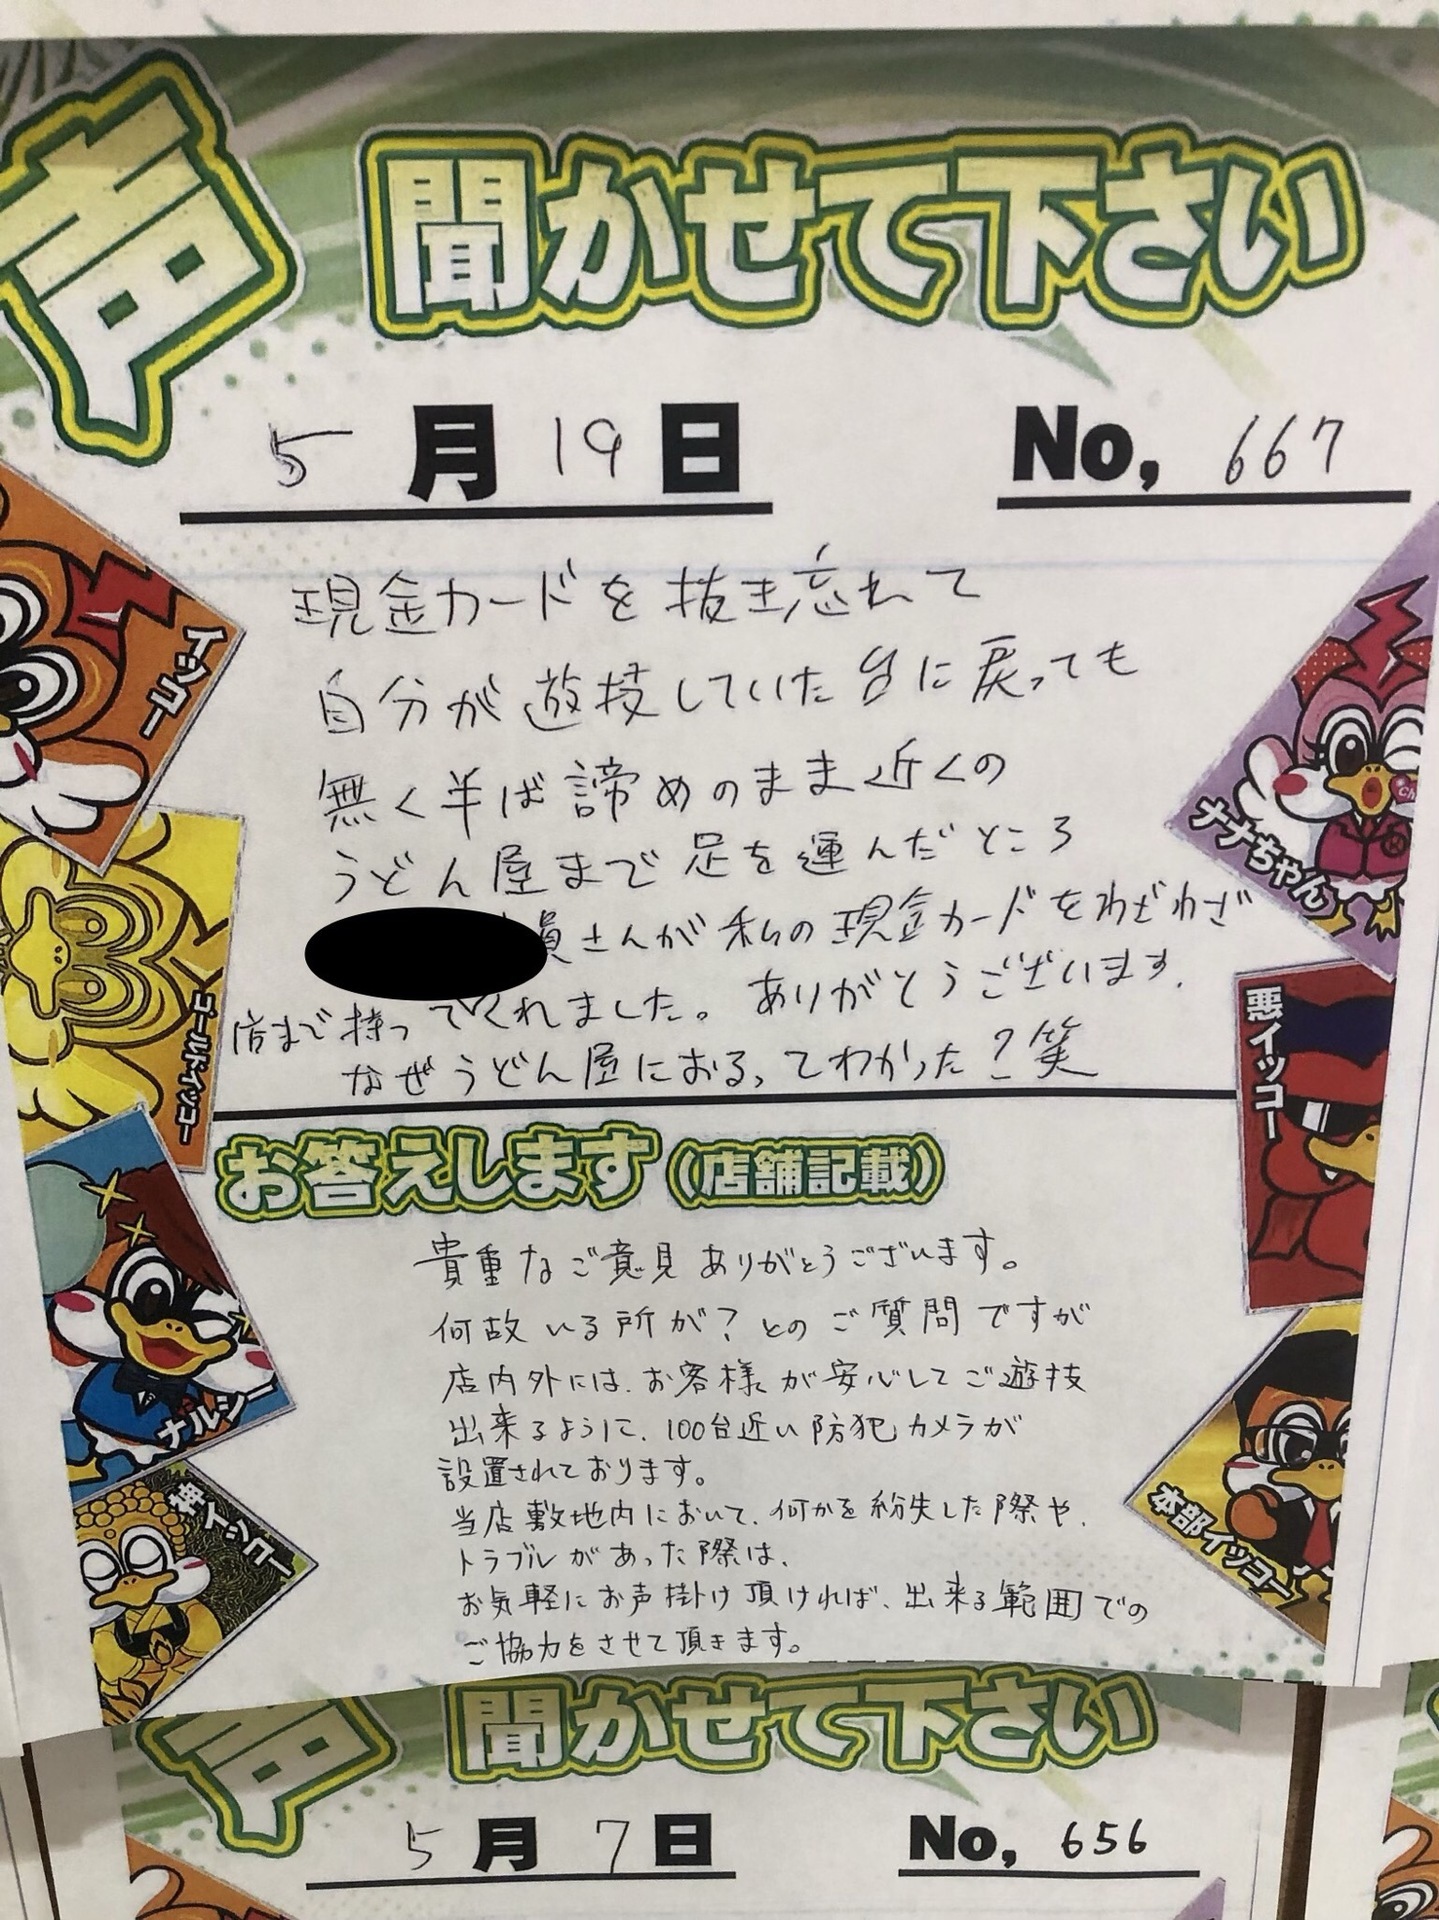 声 聞かせて下さい
5月19日 No, 667
現金カードを抜き忘れて
自分が遊技していた台に戻っても
無く半ば諦めのまま近くの
うどん屋まで足を運んだところ
員さんが私の現金カードをわざわざ
店まで持ってくれました。ありがとうございます.
なぜうどん屋におるってわかった?笑
お答えします(店舗記載)
貴重なご意見ありがとうございます。
何故いる所が?とのご質問ですが
店内外には、お客様が安心してご遊技
出来るように、100台近い防犯カメラが
設置されております。
当店敷地内において、何かを紛失した際や、
トラブルがあった際は、
お気軽にお声掛け頂ければ、出来る範囲での
ご協力をさせて頂きます。
イッコー
ゴールドイッコー
ナルシー
神イッコー
ナナちゃん
悪イッコー
本部イッコー
声 聞かせて下さい
5月7日 No, 656